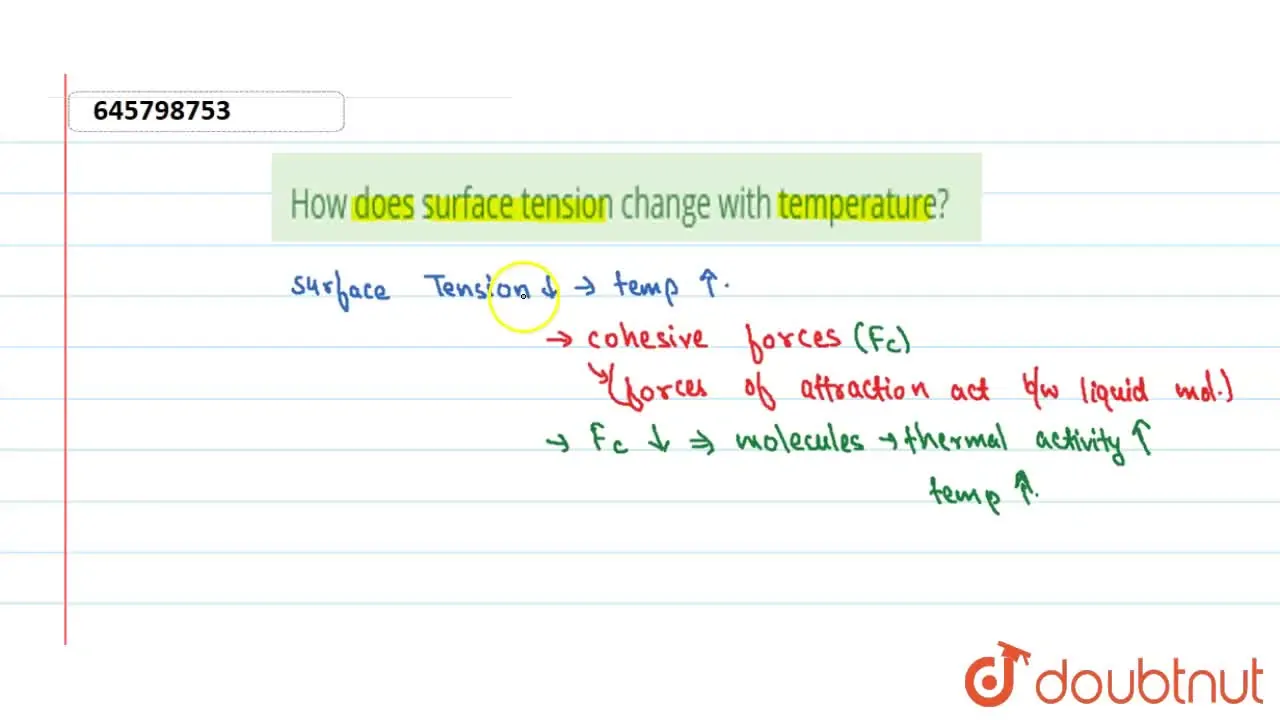 645798753
How does surface tension change with temperature?
surface Tension ↓ → temp ↑.
→ cohesive forces (Fc)
↘ (forces of attraction act b/w liquid mol.)
→ Fc ↓ ⇒ molecules → thermal activity ↑
temp ↑.
doubtnut